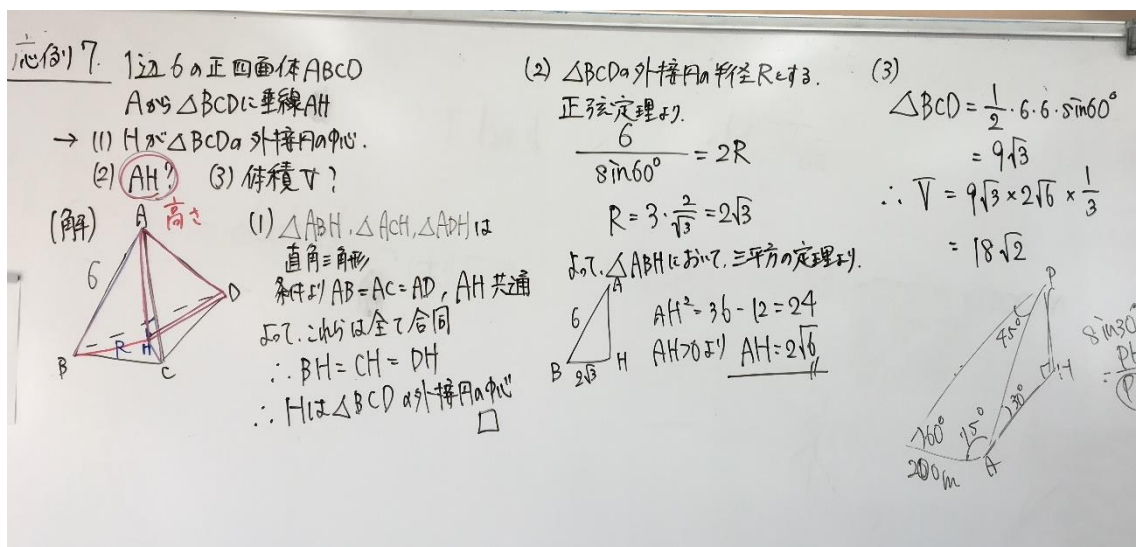 応例7.
1辺6の正四面体ABCD
Aから△BCDに垂線AH
→ (1) Hが△BCDの外接円の中心.
(2) AH? (3) 体積V?
高さ
(解)
A
6
B
R
H
C
D
(1) △ABH, △ACH, △ADHは
直角三角形
条件より AB=AC=AD, AH共通
よって、これらは全て合同
∴ BH = CH = DH
∴ Hは△BCDの外接円の中心
□
(2) △BCDの外接円の半径Rとする.
正弦定理より.
6/sin60° = 2R
R = 3・2/√3 = 2√3
よって、△ABHにおいて、三平方の定理より.
A
6
B
2√3
H
AH² = 36 - 12 = 24
AH>0より AH=2√6
(3)
△BCD = 1/2・6・6・sin60°
= 9√3
∴ V = 9√3 × 2√6 × 1/3
= 18√2
P
45°
H
30°
60°
75°
A
200m
sin30°
= PH/P